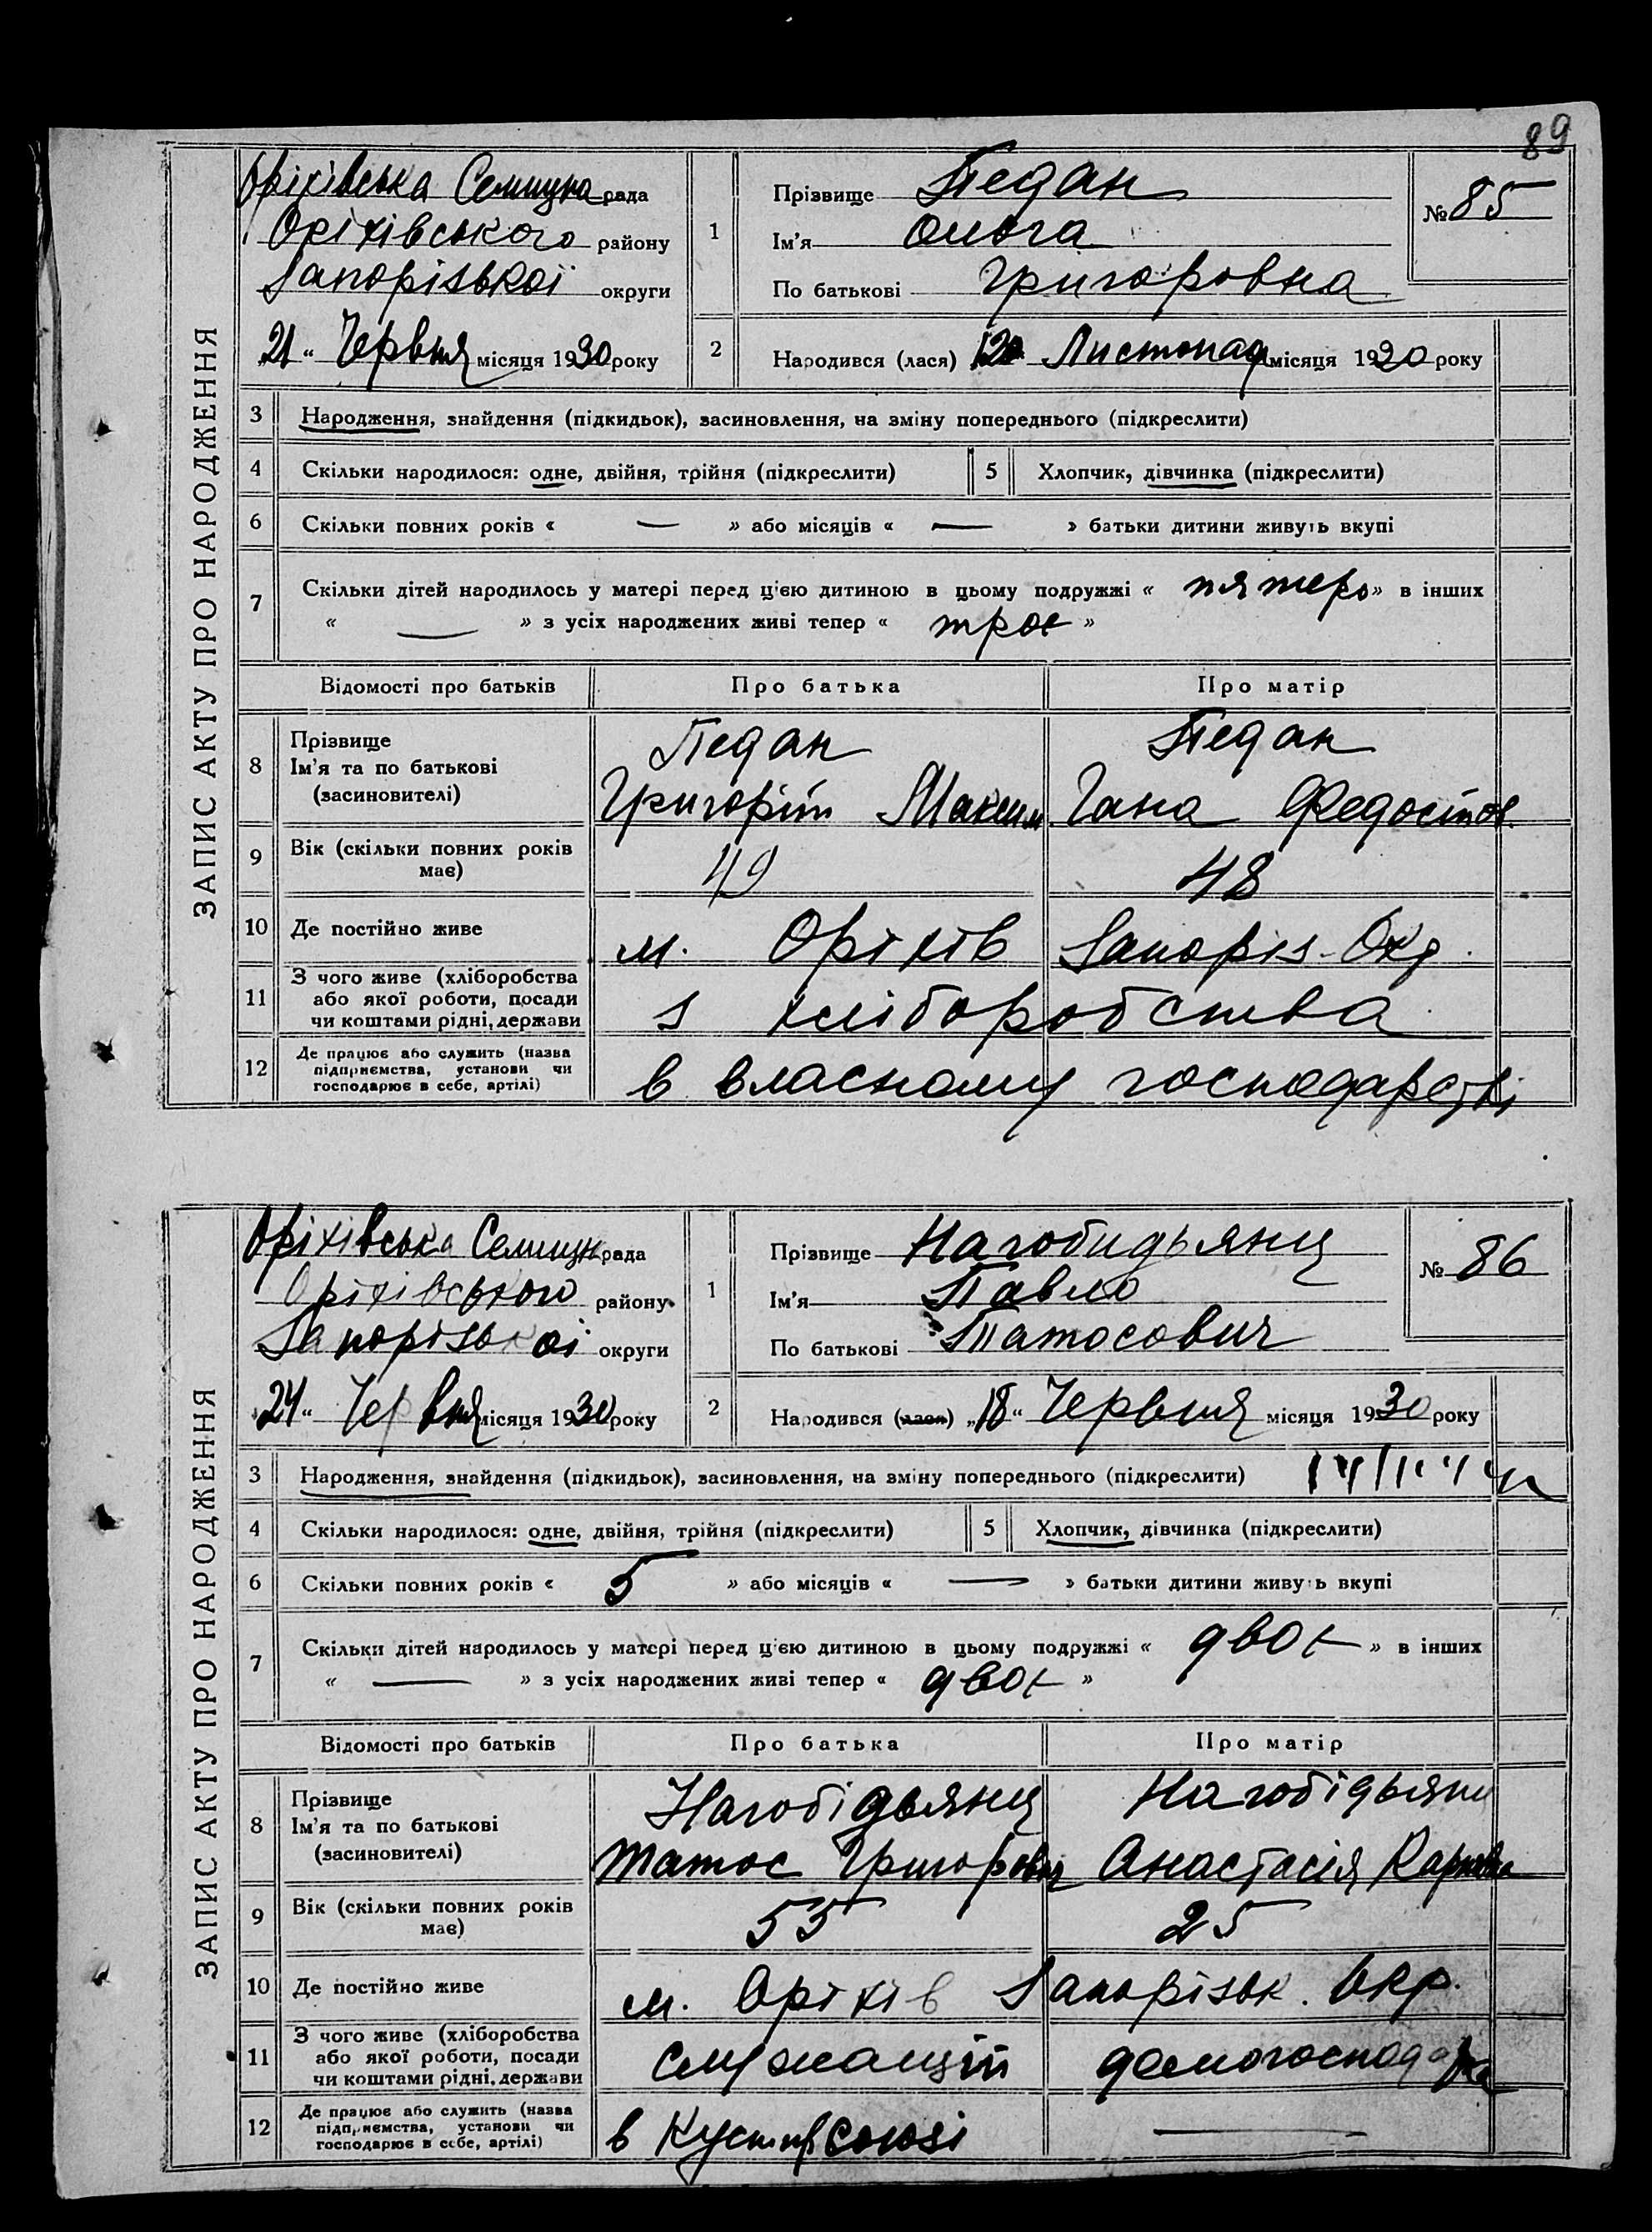 89
ЗАПИС АКТУ ПРО НАРОДЖЕННЯ
Оріхівська Селищна рада
Оріхівського району
Запорізької округи
„21“ Червня місяця 1930 року
1
Прізвище Педан
Ім'я Ольга
По батькові Григоровна
№ 85
2 Народився (лася) Листопад місяця 1920 року
3 Народження, знайдення (підкидьок), засиновлення, на зміну попереднього (підкреслити)
4 Скільки народилося: одне, двійня, трійня (підкреслити) 5 Хлопчик, дівчинка (підкреслити)
6 Скільки повних років « — » або місяців « — » батьки дитини живуть вкупі
7 Скільки дітей народилось у матері перед цією дитиною в цьому подружжі « пятеро » в інших
« — » з усіх народжених живі тепер « троє »
Відомості про батьків Про батька Про матір
8 Прізвище Педан Педан
Ім'я та по батькові Григорій Максим. Гана Федостов.
(засиновителі)
9 Вік (скільки повних років має) 49 48
10 Де постійно живе м. Оріхів Запоріз. Окр.
11 З чого живе (хліборобства
або якої роботи, посади
чи коштами рідні, держави
з хліборобства
12 Де працює або служить (назва
підприємства, установи чи
господарює в себе, артілі)
в власному господарстві
ЗАПИС АКТУ ПРО НАРОДЖЕННЯ
Оріхівська Селищн рада
Оріхівського району
Запорізької округи
„24“ Червня місяця 1930 року
1
Прізвище Нагобидьянц
Ім'я Павло
По батькові Татосович
№ 86
2 Народився (лася) „18“ Червня місяця 1930 року
3 Народження, знайдення (підкидьок), засиновлення, на зміну попереднього (підкреслити)
4 Скільки народилося: одне, двійня, трійня (підкреслити) 5 Хлопчик, дівчинка (підкреслити)
6 Скільки повних років « 5 » або місяців « — » батьки дитини живуть вкупі
7 Скільки дітей народилось у матері перед цією дитиною в цьому подружжі « двоє » в інших
« — » з усіх народжених живі тепер « двоє »
Відомості про батьків Про батька Про матір
8 Прізвище Нагобідьянц Нагобідьянц
Ім'я та по батькові Татос Григорович Анастасія Карповна
(засиновителі)
9 Вік (скільки повних років має) 55 25
10 Де постійно живе м. Оріхів Запорізьк. Окр.
11 З чого живе (хліборобства
або якої роботи, посади
чи коштами рідні, держави
служащій домогосподарка
12 Де працює або служить (назва
підприємства, установи чи
господарює в себе, артілі)
в Кустпрсоюзі —